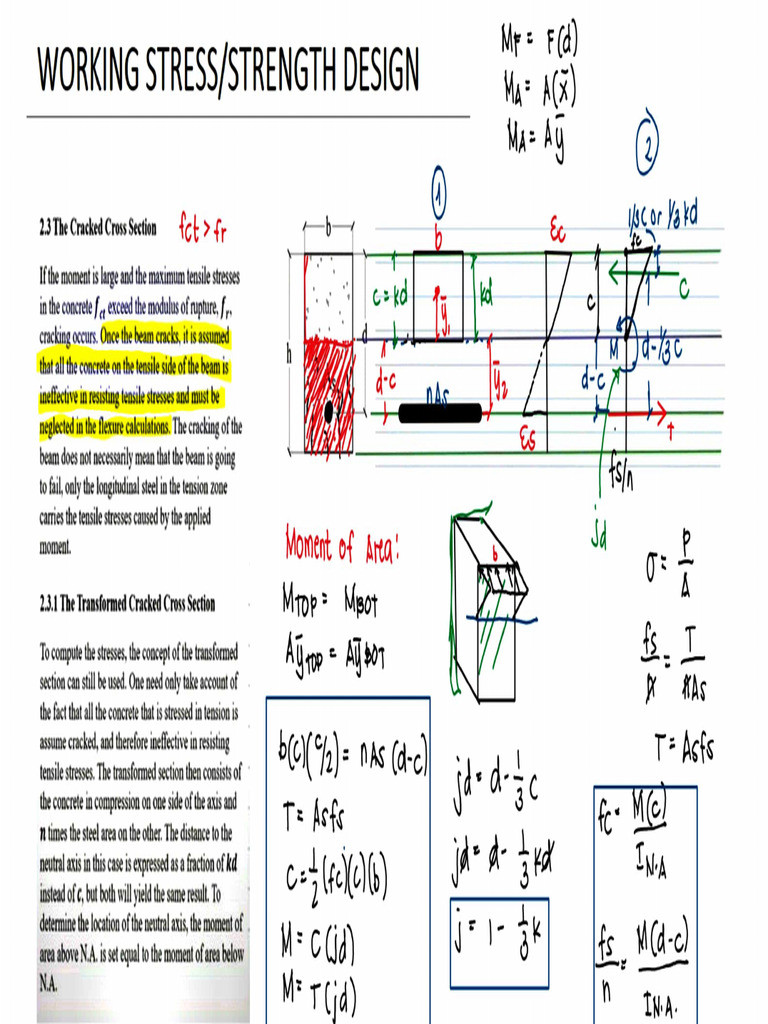 WORKING STRESS/STRENGTH DESIGN
M_F = F(d)
M_A = A(x̄)
M_A = Aȳ
2.3 The Cracked Cross Section
fct > fr
If the moment is large and the maximum tensile stresses
in the concrete f_ct exceed the modulus of rupture, f_r,
cracking occurs. Once the beam cracks, it is assumed
that all the concrete on the tensile side of the beam is
ineffective in resisting tensile stresses and must be
neglected in the flexure calculations. The cracking of the
beam does not necessarily mean that the beam is going
to fail, only the longitudinal steel in the tension zone
carries the tensile stresses caused by the applied
moment.
2.3.1 The Transformed Cracked Cross Section
To compute the stresses, the concept of the transformed
section can still be used. One need only take account of
the fact that all the concrete that is stressed in tension is
assume cracked, and therefore ineffective in resisting
tensile stresses. The transformed section then consists of
the concrete in compression on one side of the axis and
n times the steel area on the other. The distance to the
neutral axis in this case is expressed as a fraction of kd
instead of c, but both will yield the same result. To
determine the location of the neutral axis, the moment of
area above N.A. is set equal to the moment of area below
N.A.
b
h
d
1
b
c = kd
kd
ȳ1
d-c
ȳ2
nAs
εc
εs
2
1/3c or 1/3kd
fc
c
C
M
d-1/3c
d-c
T
fs/n
jd
Moment of Area:
MTOP = MBOT
AȳTOP = AȳBOT
b(c)(c/2) = nAs(d-c)
T = Asfs
C = 1/2(fc)(c)(b)
M = C(jd)
M = T(jd)
b
jd = d - 1/3 c
jd = d - 1/3 kd
j = 1 - 1/3 k
σ = P/A
fs/n = T/nAs
T = Asfs
fc = M(c)/I_N.A
fs/n = M(d-c)/I_N.A.